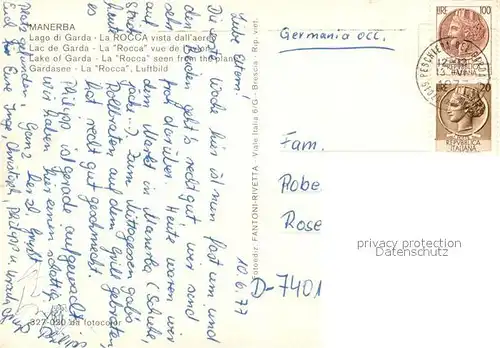 MANERBA
Lago di Garda - La ROCCA vista dall'aereo
Lac de Garda - La "Rocca" vue de l'avion
Lake of Garda - La "Rocca" seen from the plane
Gardasee - La "Rocca", Luftbild
Germania occ.
LIRE 100
REPVBBLICA ITALIANA
LIRE 20
REPVBBLICA ITALIANA
12-13
13.
10.6.77
Liebe Eltern!
Die erste Woche hier ist nun fast um und
den Beiden geht's recht gut, wir sind
froh darüber. Heute waren wir
auf dem Markt in Manerba (Schuhe,
Jacke...) Zum Mittagessen gab's
Rollbraten auf dem Grill gebraten,
hat recht gut geschmeckt.
Philipp ist gerade aufgewacht,
wir haben hier einen schattigen
Platz gefunden. Ganz herzl. grüßt
Euch Eure Inge, Christoph, Philipp u.
Fam.
Hobe
Rose
D-7401
Fotoediz. FANTONI-RIVETTA - Viale Italia 6/G - Brescia - Rip. viet.
327-020 da fotocolor
privacy protection
Datenschutz
www.ansichtskarten-center.de